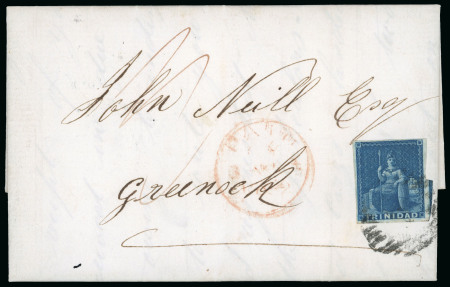 John Neill Esq
Greenock
PAID
TRINIDAD